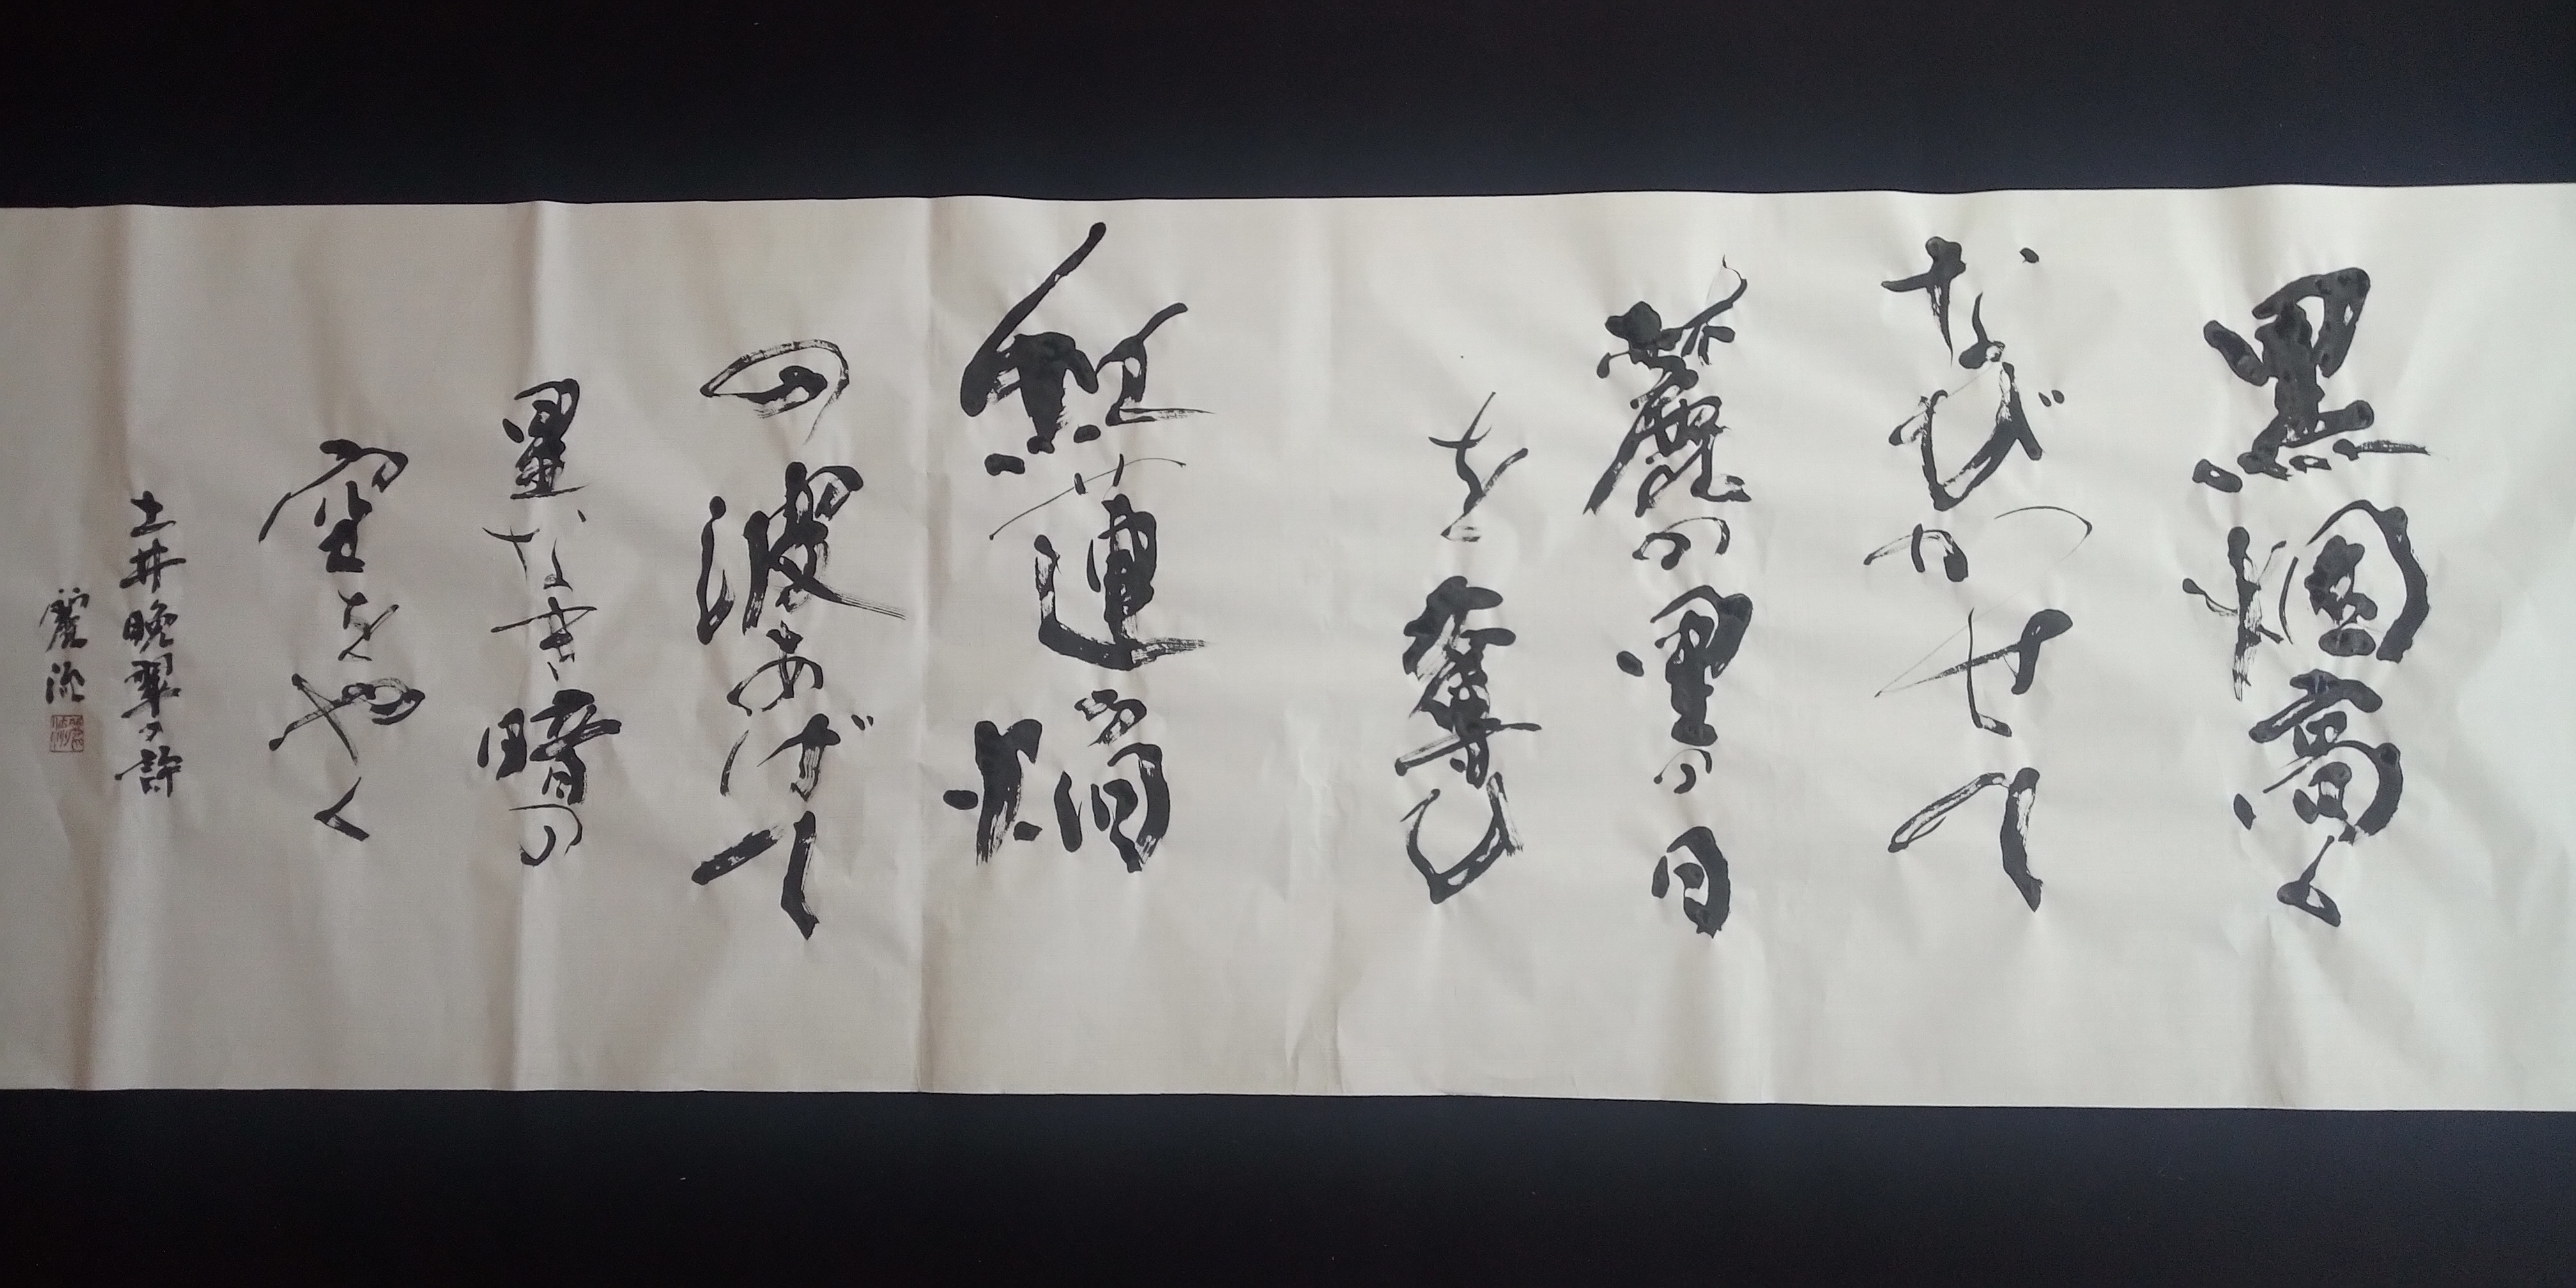 黒烟高く
なびかせて
麓の里の日
を奪ひ
紅蓮焔
の波あげて
星なき暗の
空をやく
土井晩翠の詩
麗